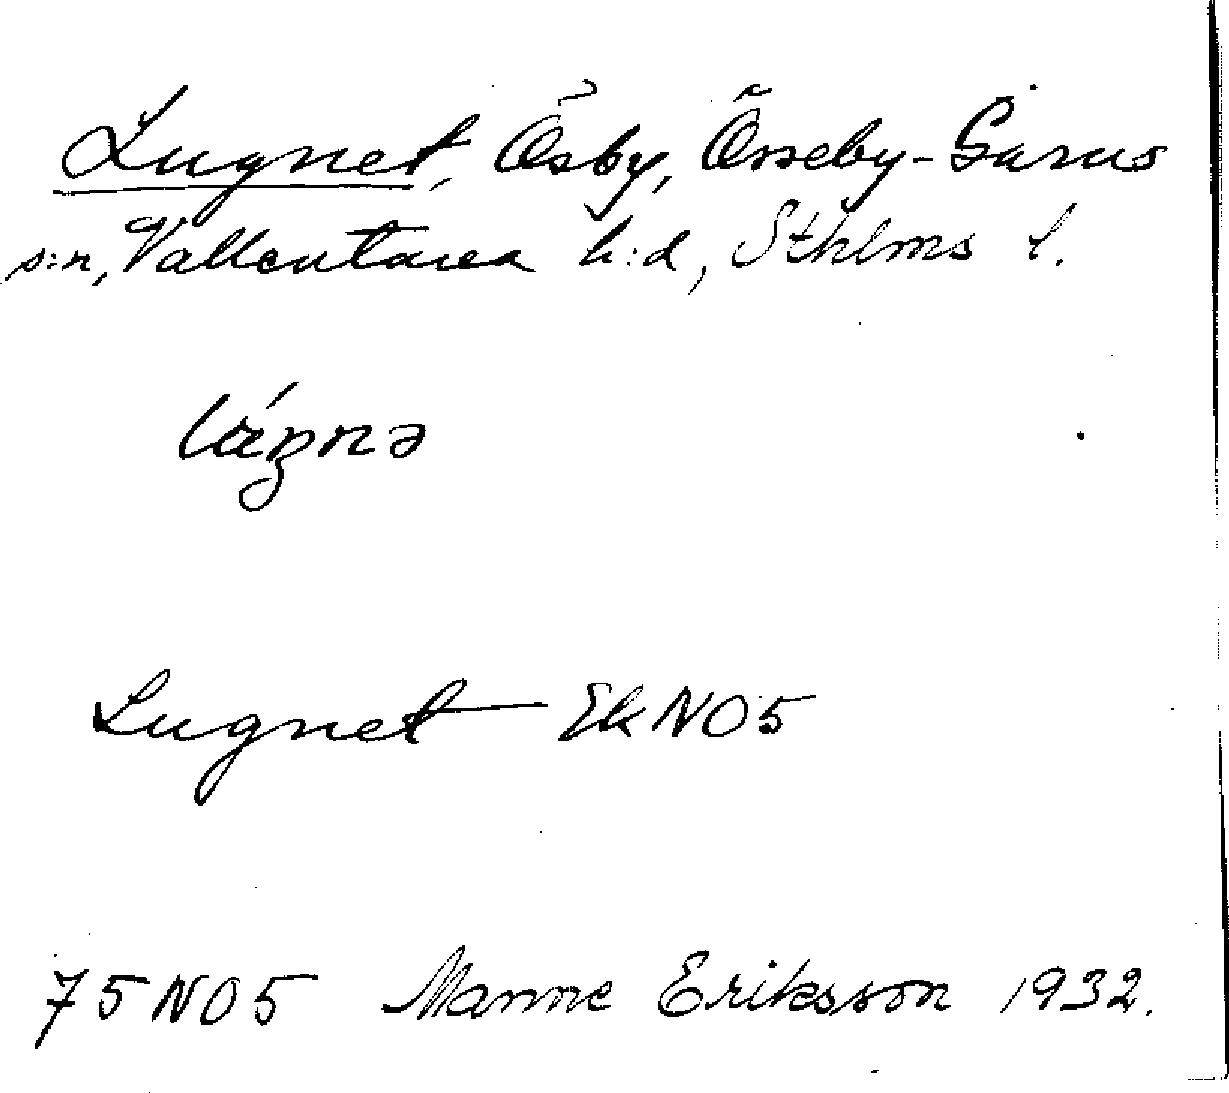 Lugnet, Ösby, Össeby-Garns
s:n, Vallentuna h:d, Sthlms l.
Lugnet Ek NO5
75 NO5 Manne Eriksson 1932.